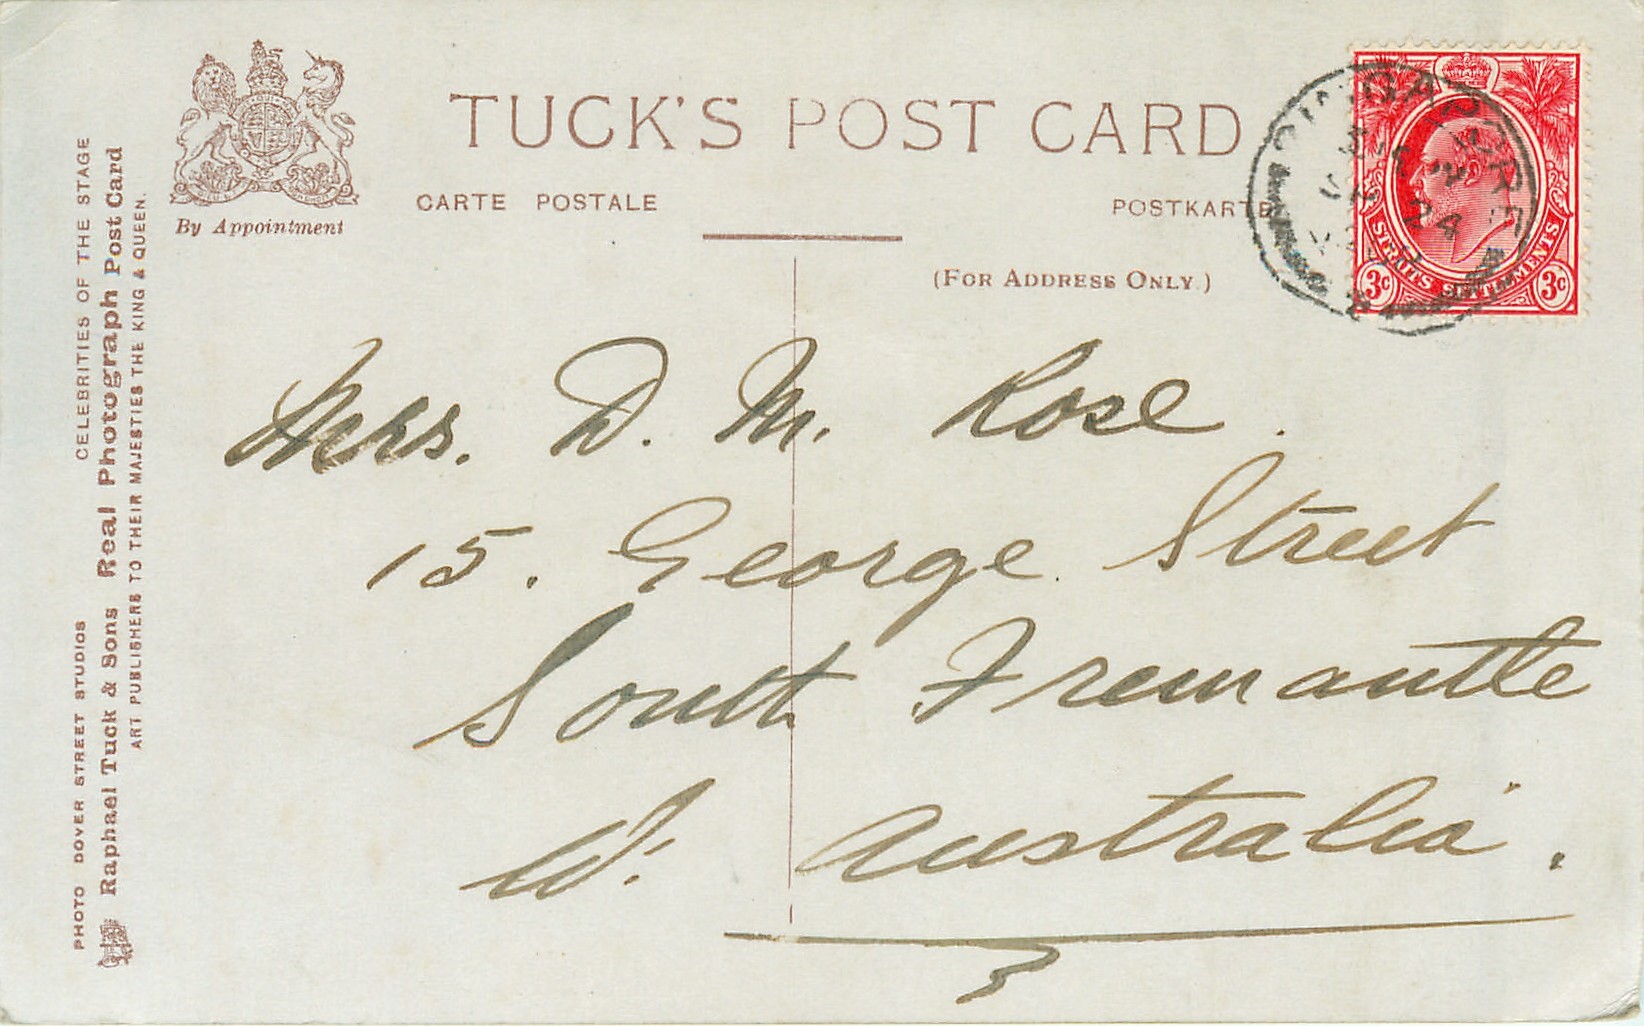 TUCK'S POST CARD
By Appointment
CARTE POSTALE
POSTKARTE
(FOR ADDRESS ONLY.)
SINGAPORE
24
STRAITS SETTLEMENTS
3c 3c
Mrs. D. M. Rose.
15. George Street
South Fremantle
W. Australia.
PHOTO DOVER STREET STUDIOS CELEBRITIES OF THE STAGE
Raphael Tuck & Sons Real Photograph Post Card
ART PUBLISHERS TO THEIR MAJESTIES THE KING & QUEEN.